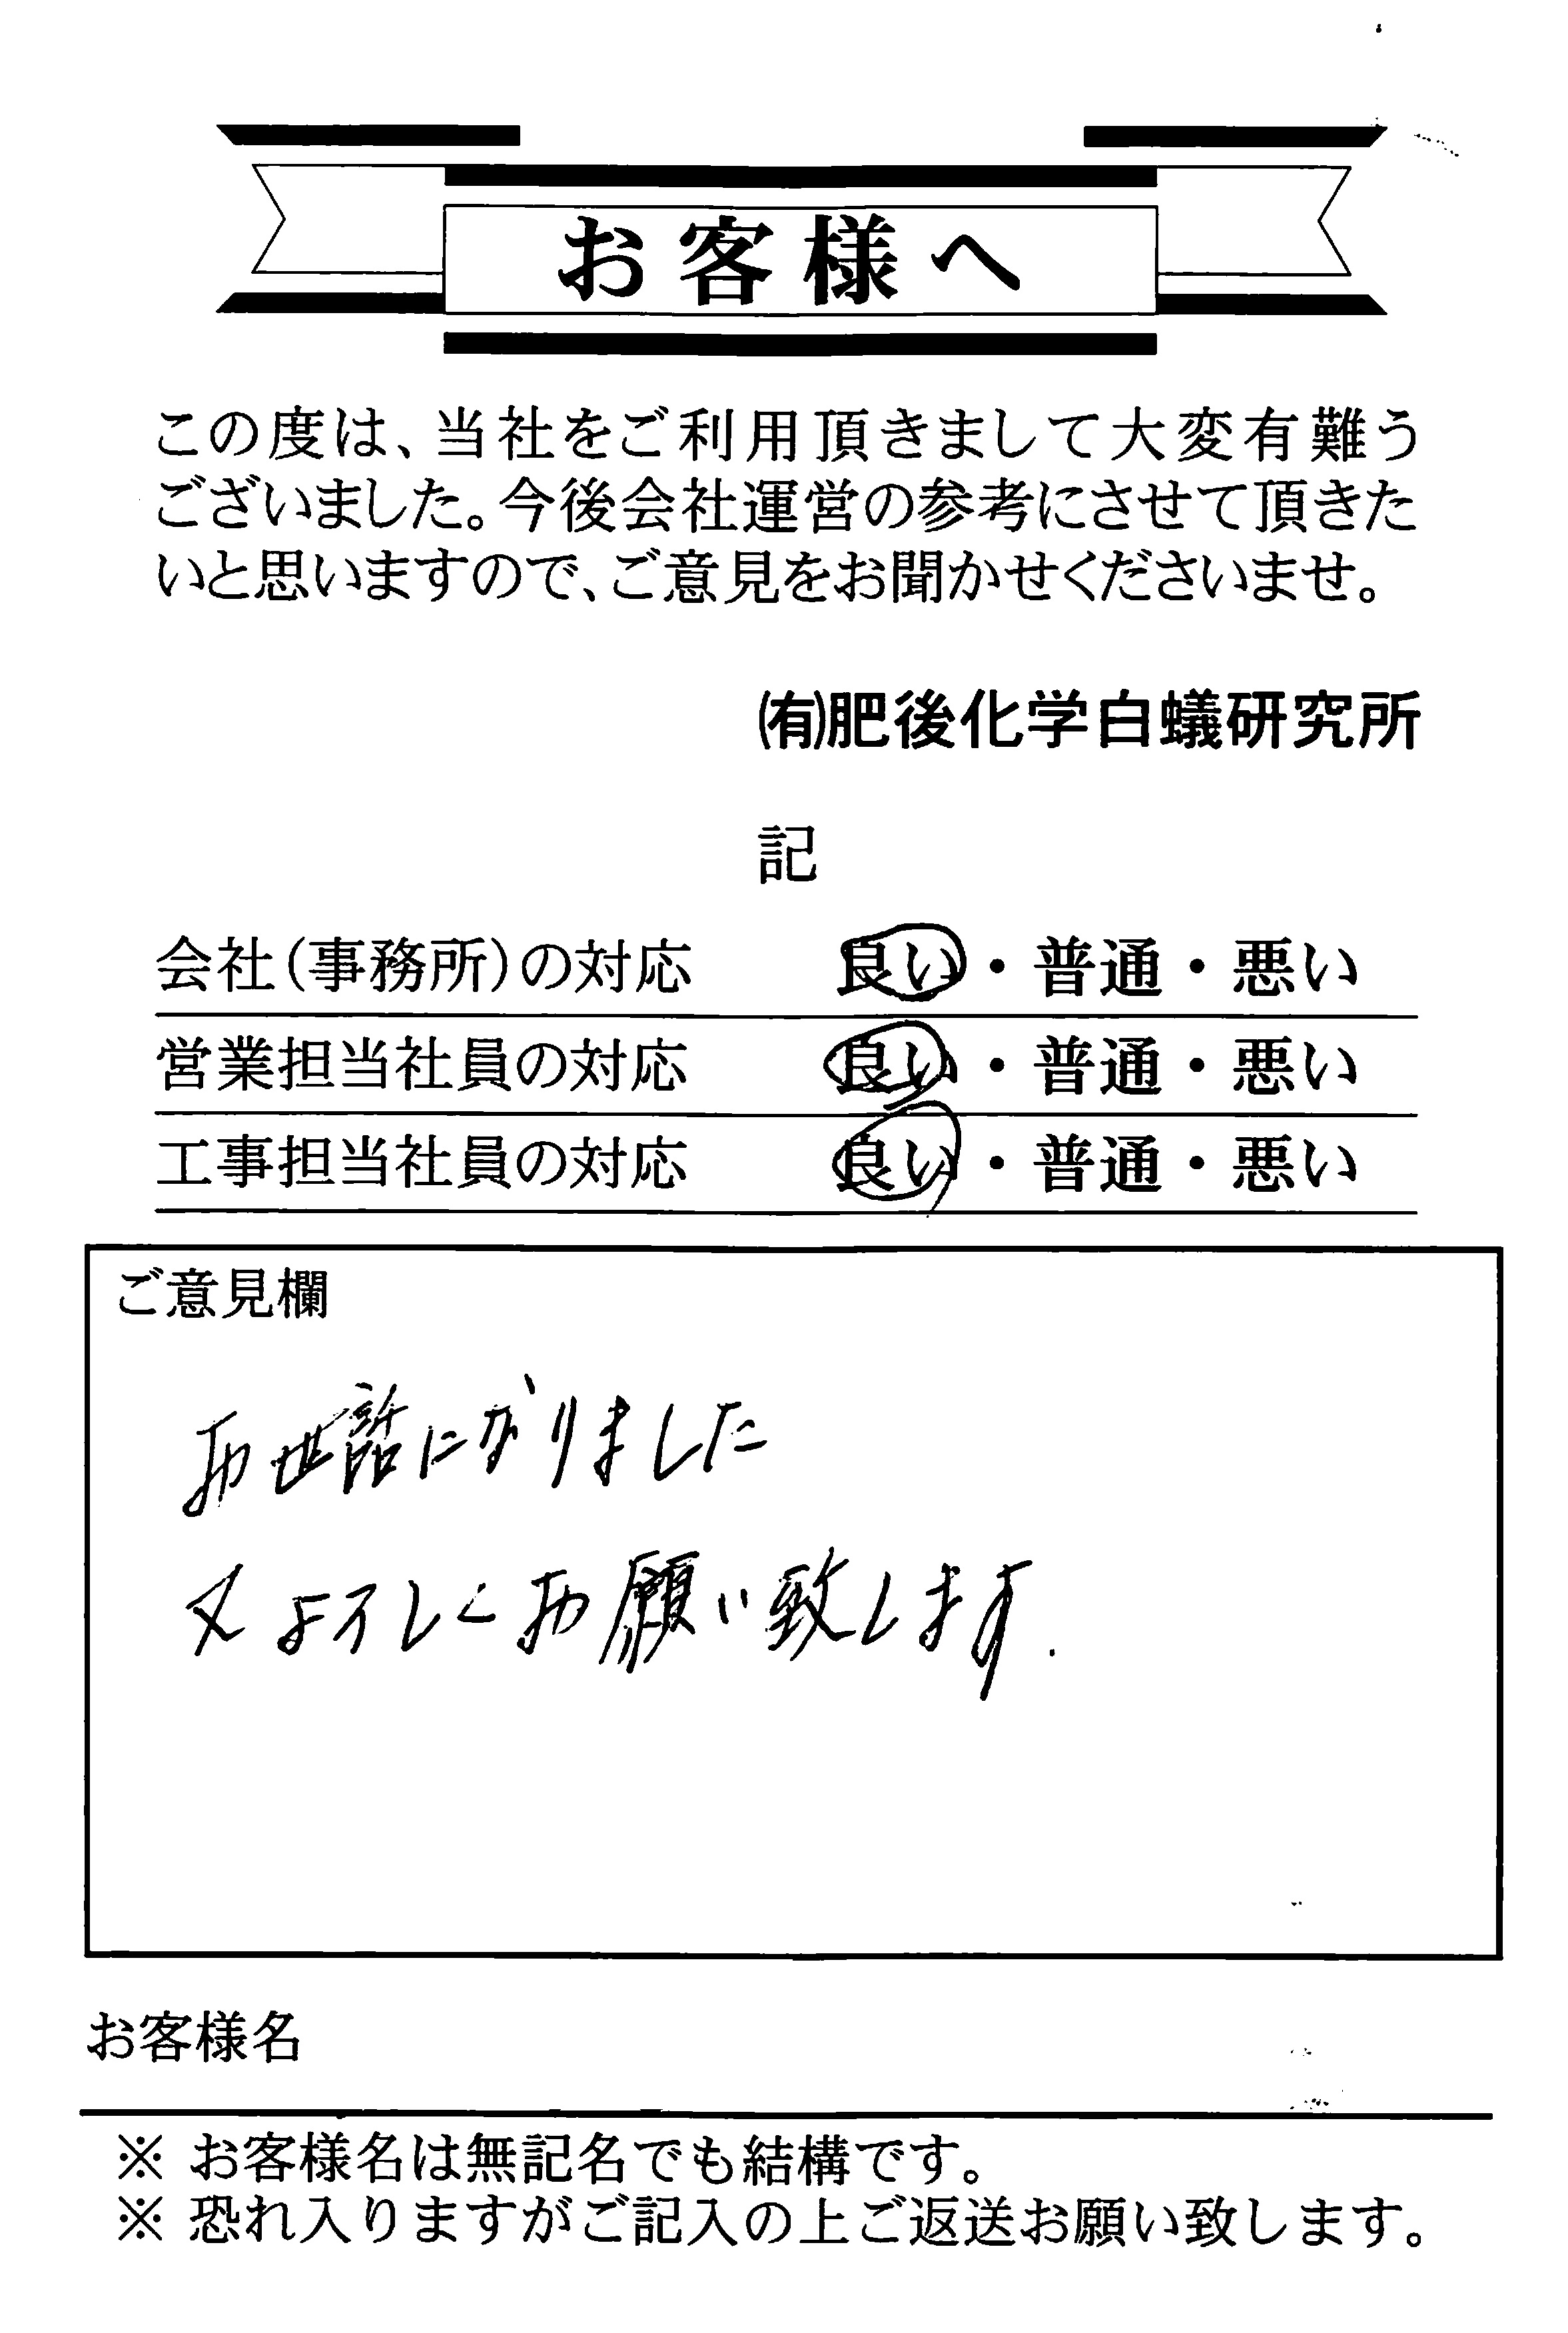 お客様へ
この度は、当社をご利用頂きまして大変有難う
ございました。今後会社運営の参考にさせて頂きた
いと思いますので、ご意見をお聞かせくださいませ。
㈲肥後化学白蟻研究所
記
会社(事務所)の対応 良い・普通・悪い
営業担当社員の対応 良い・普通・悪い
工事担当社員の対応 良い・普通・悪い
ご意見欄
お世話になりました
又よろしくお願い致します.
お客様名
※ お客様名は無記名でも結構です。
※ 恐れ入りますがご記入の上ご返送お願い致します。